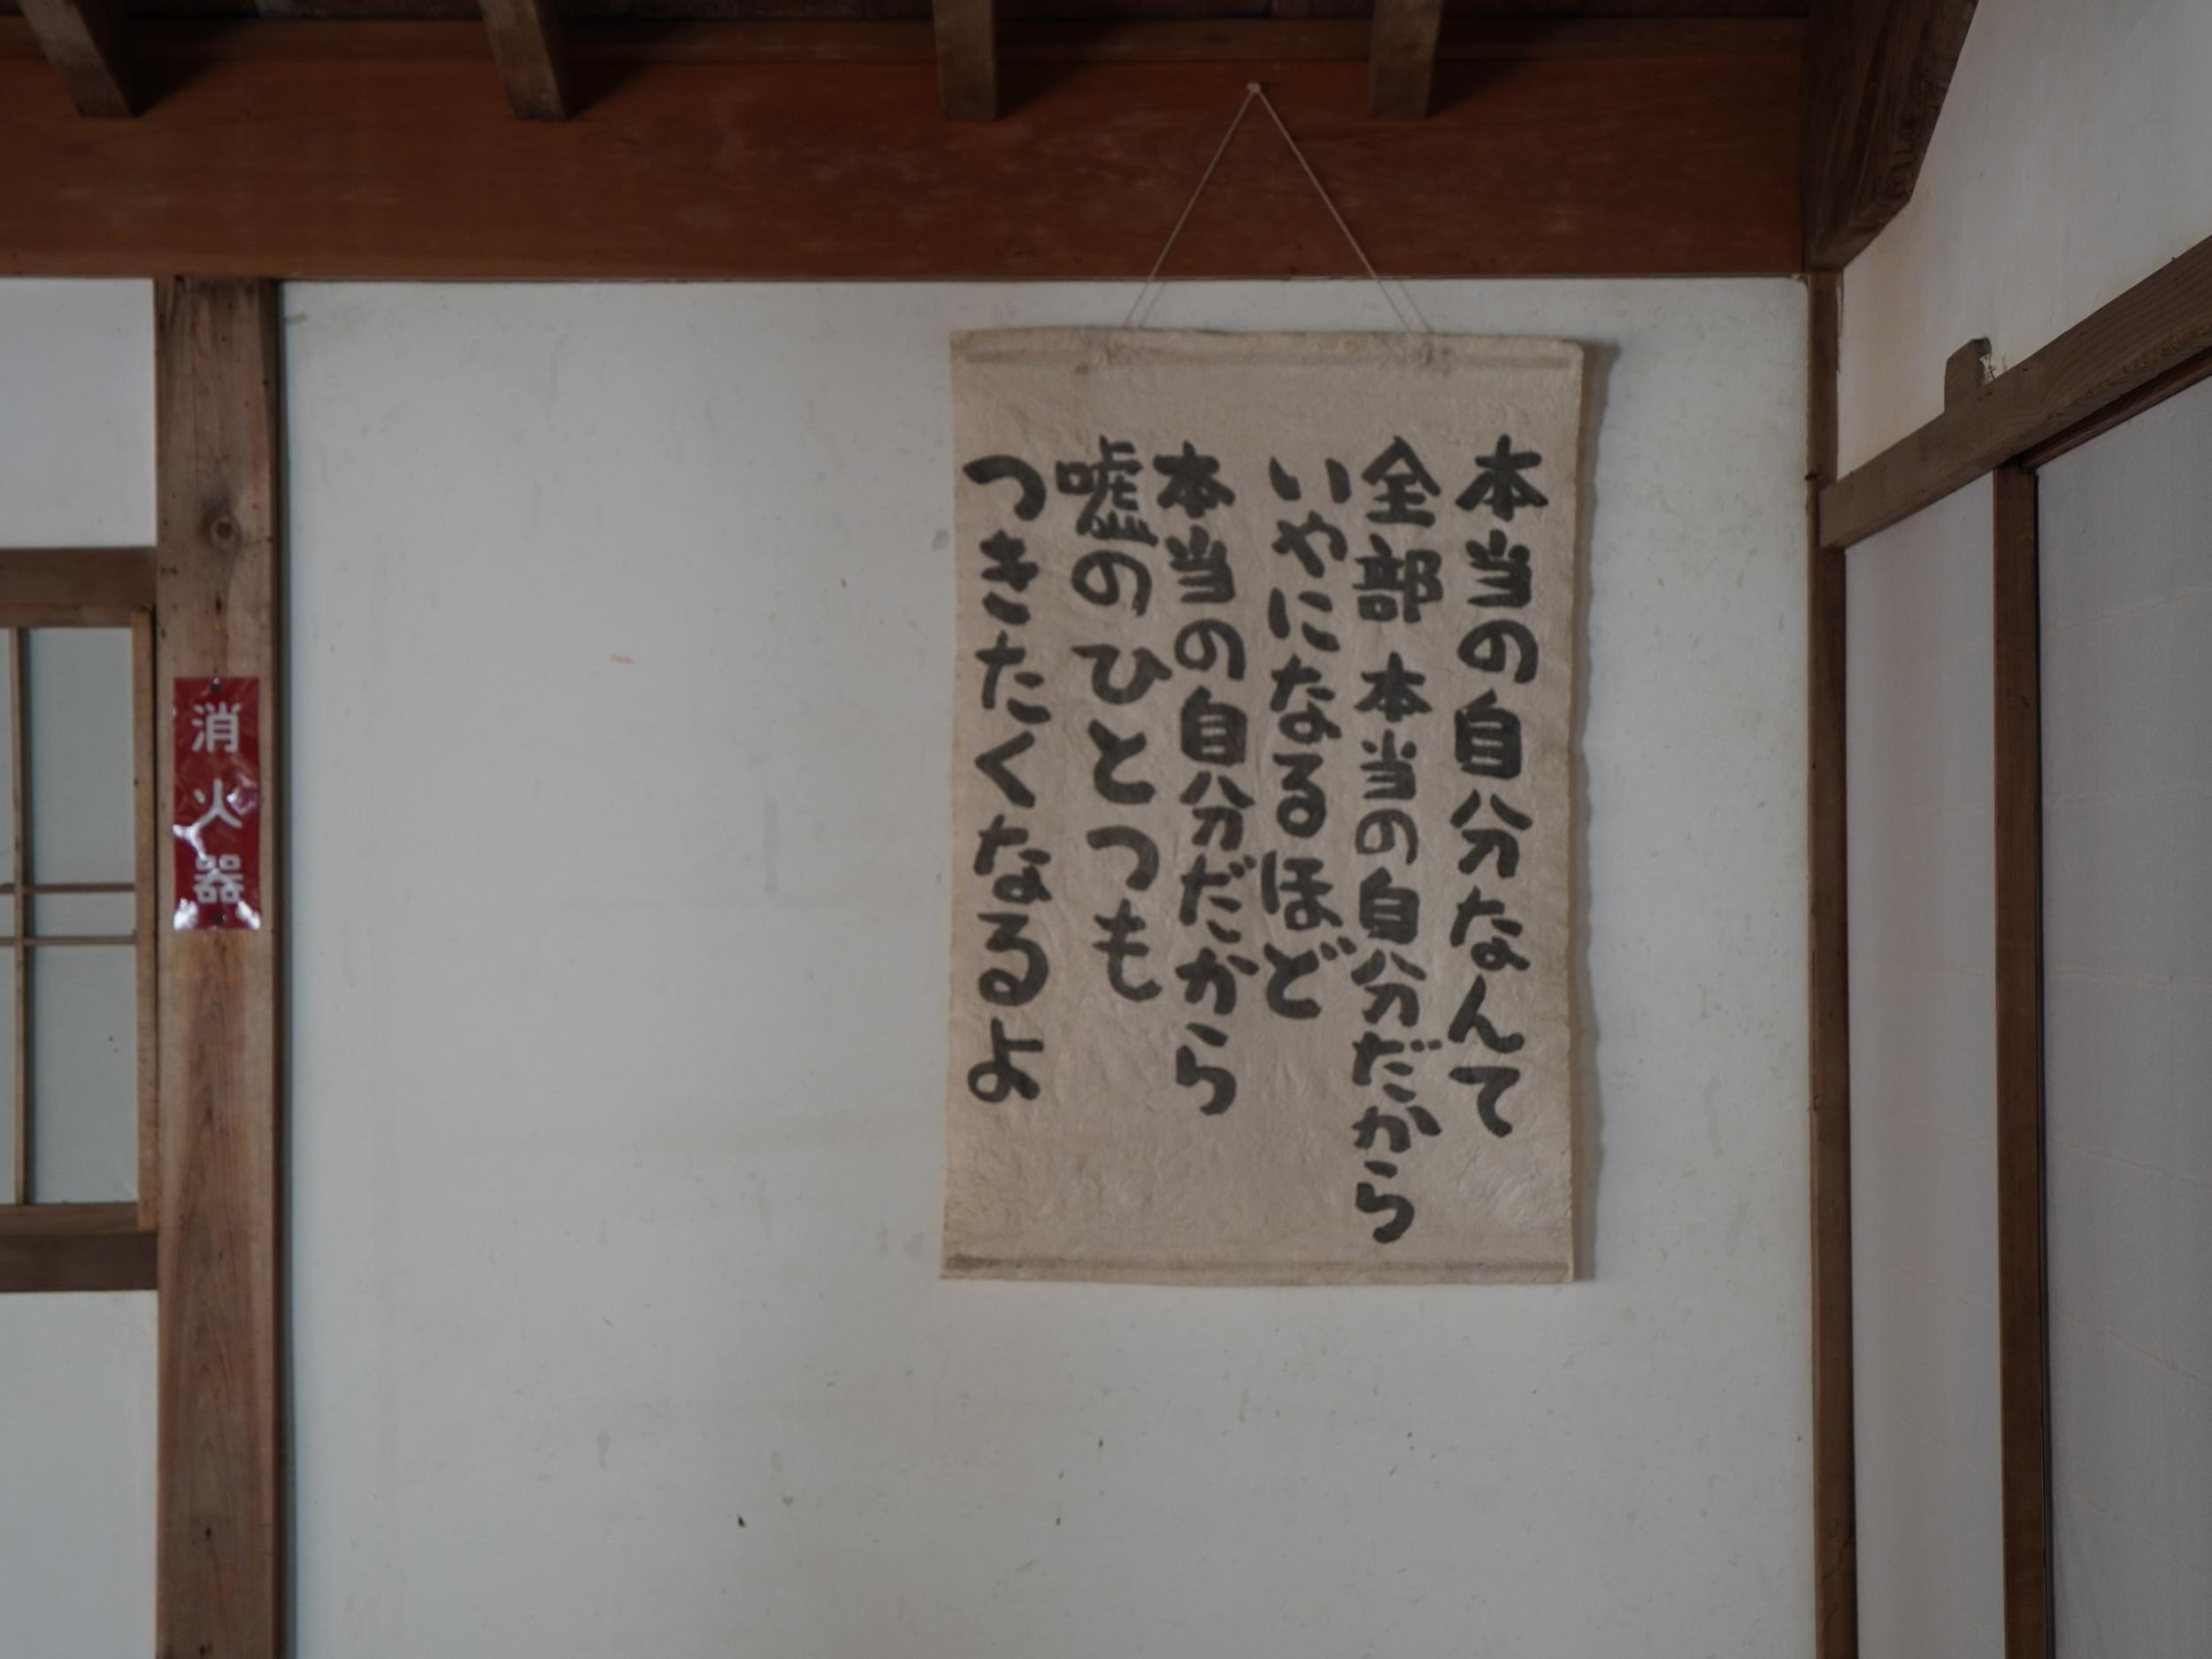 本当の自分なんて
全部 本当の自分だから
いやになるほど
本当の自分だから
嘘のひとつも
つきたくなるよ
消火器